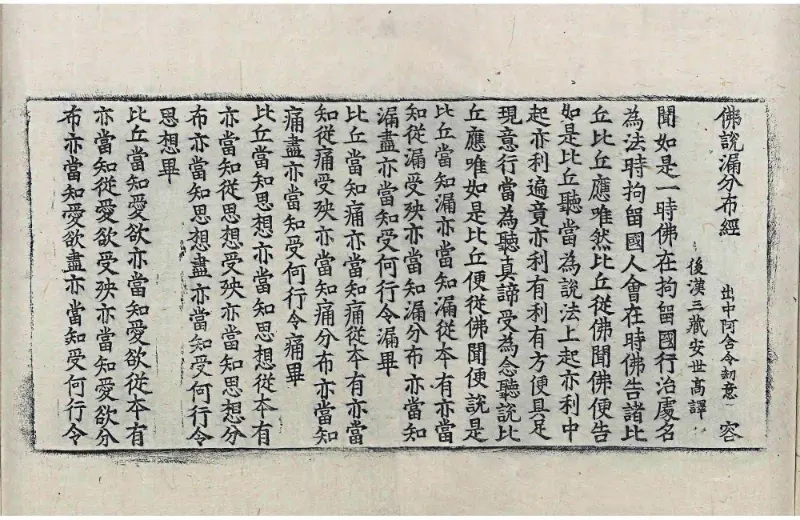 佛說漏分布經 出中阿含令劫意 容
後漢三藏安世高譯
聞如是一時佛在拘留國行治處名
為法時拘留國人會在時佛告諸比
丘比丘應唯然比丘從佛聞佛便告
如是比丘聽當為說法上起亦利中
起亦利遍竟亦利有利有方便具足
現意行當為聽真諦受為念聽說比
丘應唯如是比丘便從佛聞便說是
比丘當知漏亦當知漏從本有亦當
知從漏受殃亦當知漏分布亦當知
漏盡亦當知受何行令漏畢
比丘當知痛亦當知痛從本有亦當
知從痛受殃亦當知痛分布亦當知
痛盡亦當知受何行令痛畢
比丘當知思想亦當知思想從本有
亦當知從思想受殃亦當知思想分
布亦當知思想盡亦當知受何行令
思想畢
比丘當知愛欲亦當知愛欲從本有
亦當知從愛欲受殃亦當知愛欲分
布亦當知愛欲盡亦當知受何行令